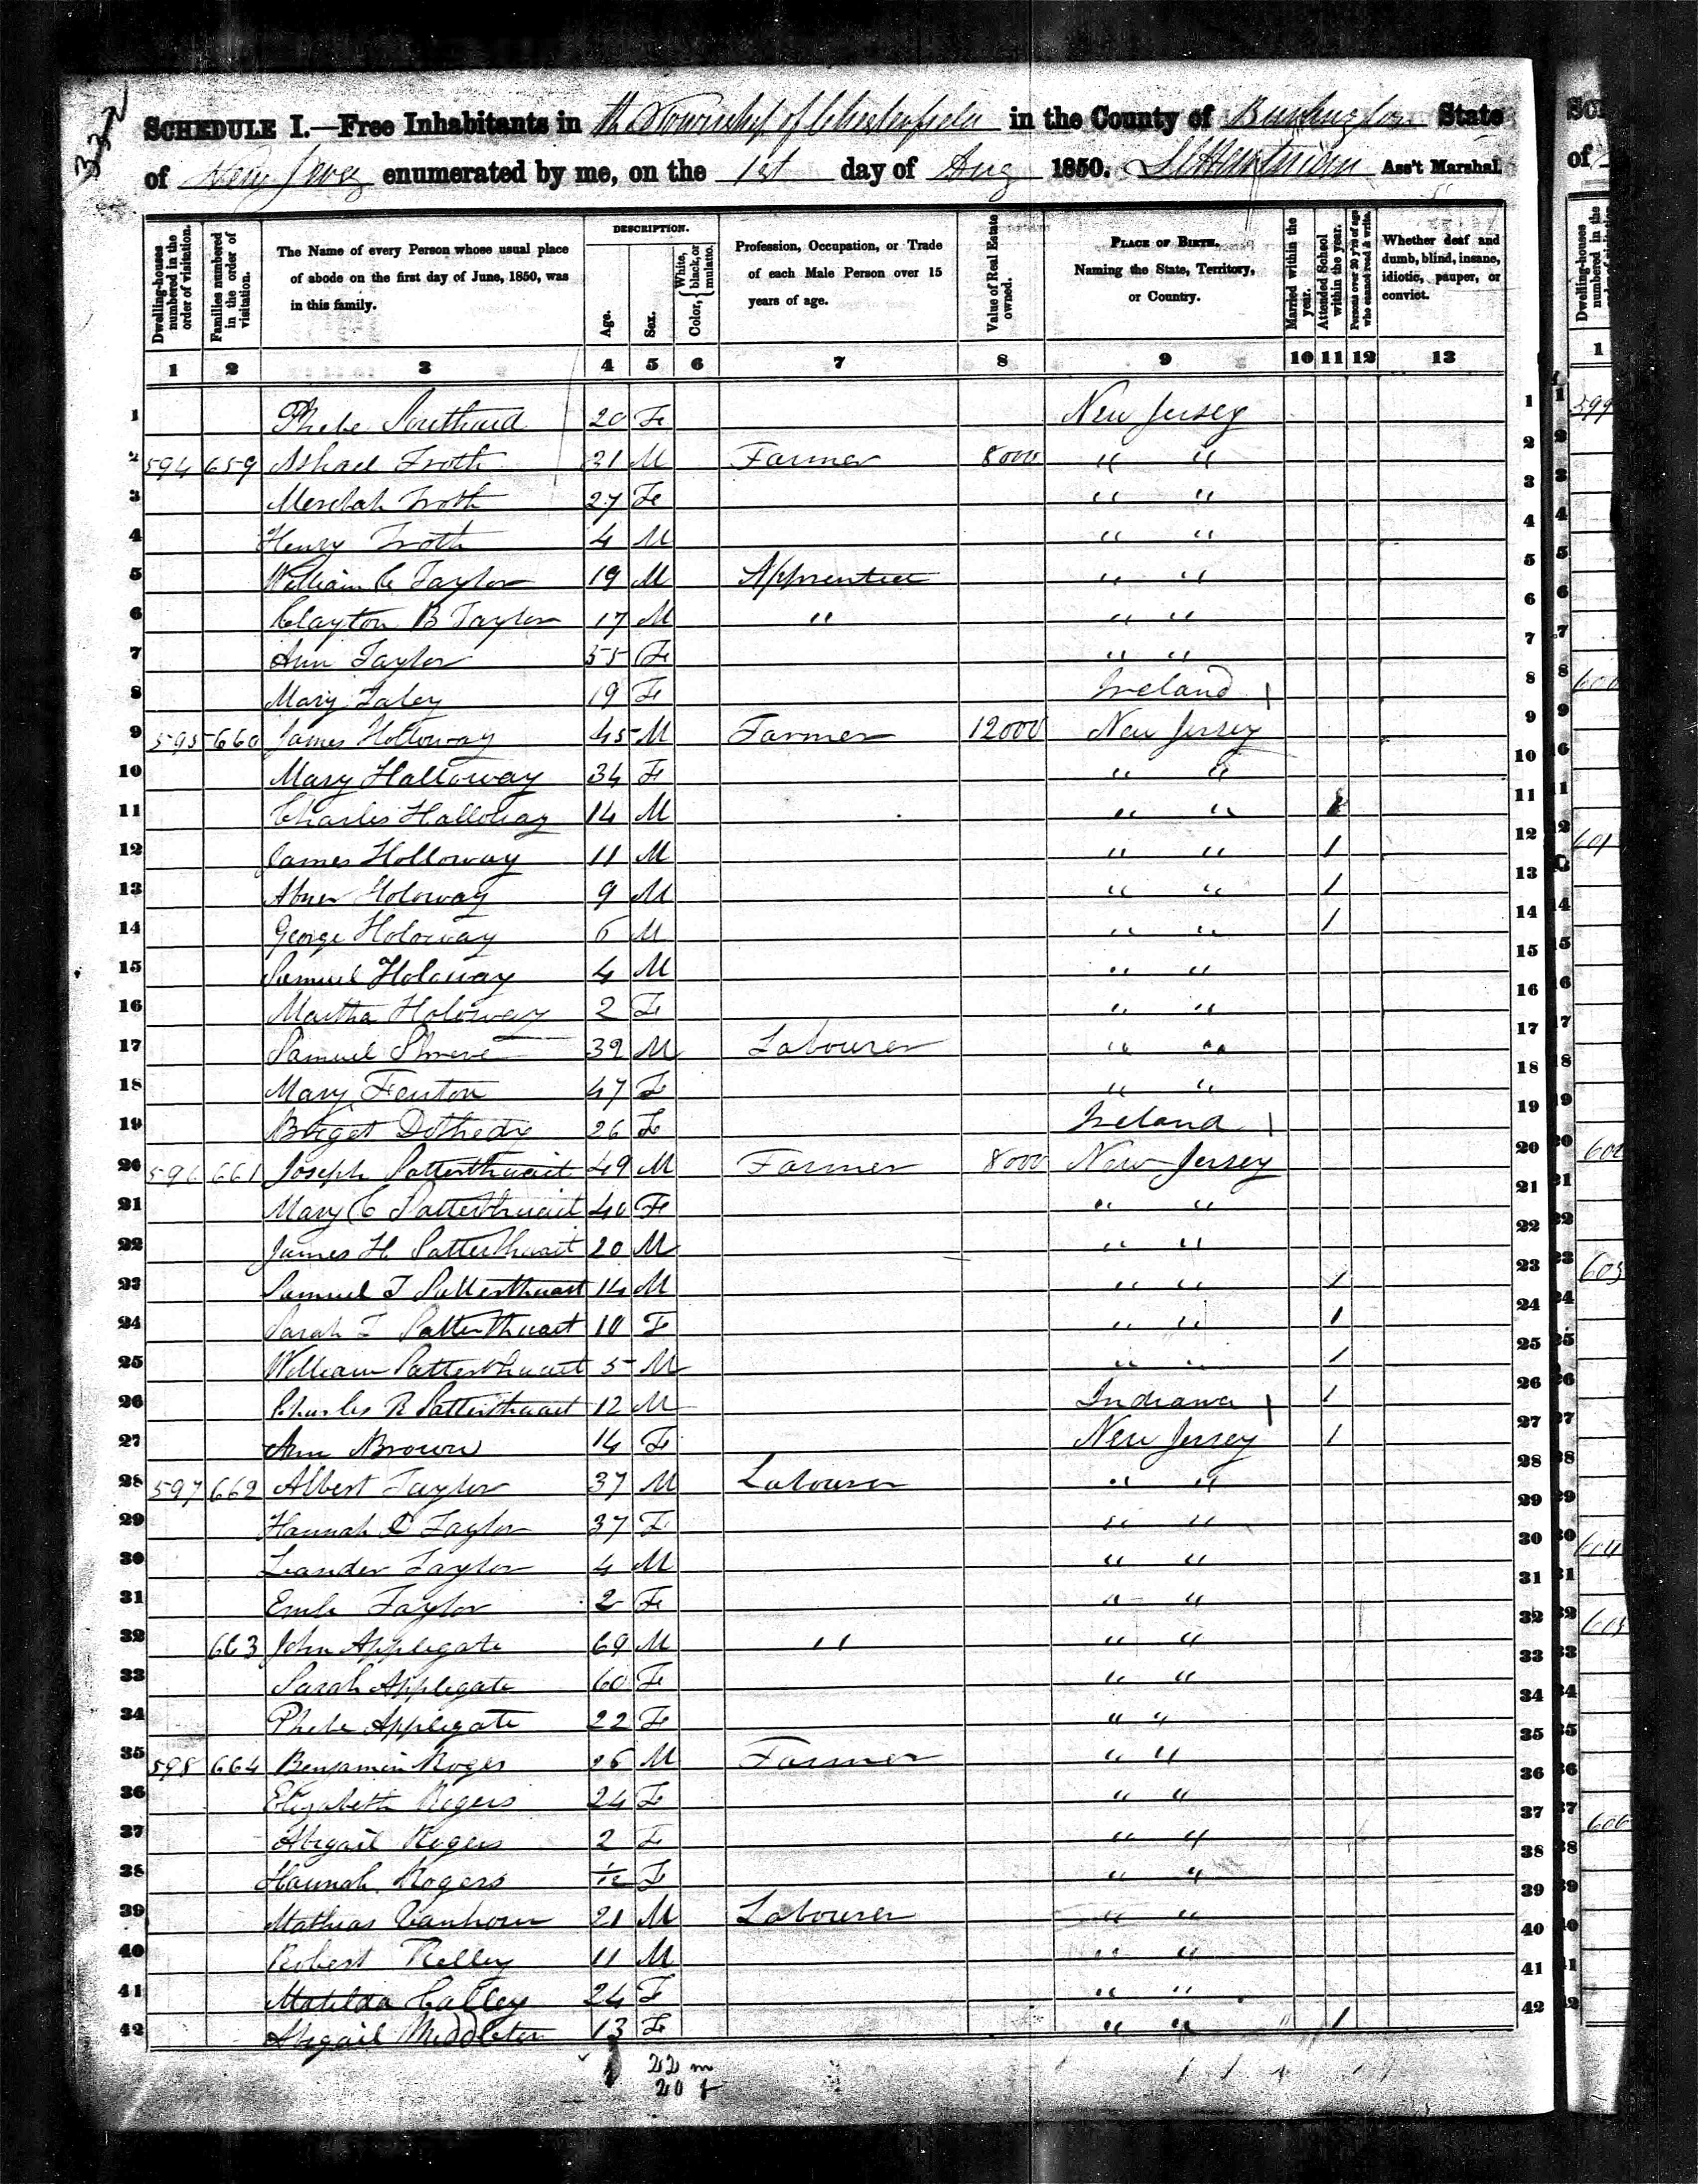 332
SCHEDULE I.—Free Inhabitants in the Township of Chesterfield in the County of Burlington State
of New Jersey enumerated by me, on the 1st day of Aug 1850. Ass't Marshal.
Dwelling-houses numbered in the order of visitation.
Families numbered in the order of visitation.
The Name of every Person whose usual place of abode on the first day of June, 1850, was in this family.
DESCRIPTION.
Age.
Sex.
Color, White, black, or mulatto.
Profession, Occupation, or Trade of each Male Person over 15 years of age.
Value of Real Estate owned.
PLACE OF BIRTH. Naming the State, Territory, or Country.
Married within the year.
Attended School within the year.
Persons over 20 y'rs of age who cannot read & write.
Whether deaf and dumb, blind, insane, idiotic, pauper, or convict.
1 2 3 4 5 6 7 8 9 10 11 12 13
1 Phebe Southard 20 Fe New Jersey 1
2 594 659 Ashael Troth 31 M Farmer 8000 " " 2
3 Troth 27 Fe " " 3
4 Henry Troth 4 M " " 4
5 William C Taylor 19 M Apprentice " " 5
6 Clayton B Taylor 17 M " " " 6
7 Ann Taylor 55 Fe " " 7
8 Mary Faley 19 Fe Ireland 8
9 595 660 James Holloway 45 M Farmer 12000 New Jersey 9
10 Mary Halloway 34 Fe " " 10
11 Charles Halloway 14 M " " 1 11
12 James Holloway 11 M " " 1 12
13 Abner Holoway 9 M " " 1 13
14 George Holoway 6 M " " 1 14
15 Samuel Holoway 4 M " " 15
16 Martha Holoway 2 Fe " " 16
17 Samuel Shreve 39 M Labourer " " 17
18 Mary Fenton 47 F " " 18
19 26 Fe Ireland 19
20 596 661 Joseph Satterthwait 49 M Farmer 8000 New Jersey 20
21 Mary C Satterthwait 40 Fe " " 21
22 James H Satterthwait 20 M " " 22
23 Samuel T Satterthwait 14 M " " 1 23
24 Sarah T Satterthwait 10 F " " 1 24
25 William Satterthwait 5 M " " 1 25
26 Charles R Satterthwait 12 M Indiana 1 26
27 Ann Brown 14 F New Jersey 1 27
28 597 662 Albert Taylor 37 M Labourer " " 28
29 Hannah D Taylor 37 F " " 29
30 Leander Taylor 4 M " " 30
31 Taylor 2 Fe " " 31
32 663 John Applegate 69 M " " " 32
33 Sarah Applegate 60 Fe " " 33
34 Phebe Applegate 22 Fe " " 34
35 598 664 Benjamin Roges 26 M Farmer " " 35
36 Elizabeth Rogers 24 F " " 36
37 Abigail Rogers 2 F " " 37
38 Hannah Rogers 1/12 F " " 38
39 Mathias Vanhorn 21 M Labourer " " 39
40 Robert Kelley 11 M " " 40
41 Matilda Calley 24 F " " 41
42 Abigail Middleton 13 Fe " " 1 42
22 m
20 f
599
600
601
602
603
604
605
606